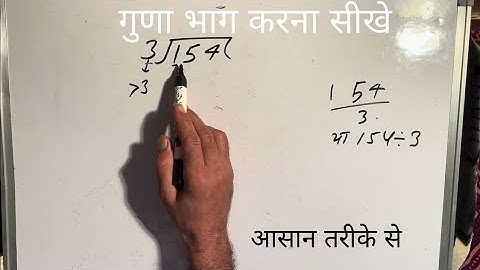 गुणा भाग करना सीखे
3)154(
>3
154
3
या 154÷3
आसान तरीके से